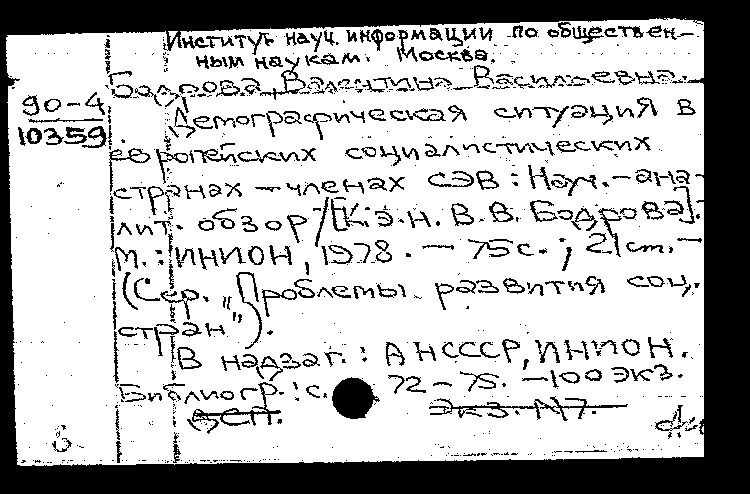 Институт науч. информации по обществен-
ным наукам. Москва.
Бодрова, Валентина Васильевна.
90-4
10359
Демографическая ситуация в
европейских социалистических
странах — членах СЭВ : Науч.-ана-
лит. обзор / [К.э.н. В.В. Бодрова]. -
М. : ИНИОН, 1978. — 75 с. ; 21 cm. -
(Сер. „Проблемы развития соц.
стран").
В надзаг. : АН СССР, ИНИОН.
Библиогр. : с. 72-75. — 100 экз.
ДСП. экз. N7.
б